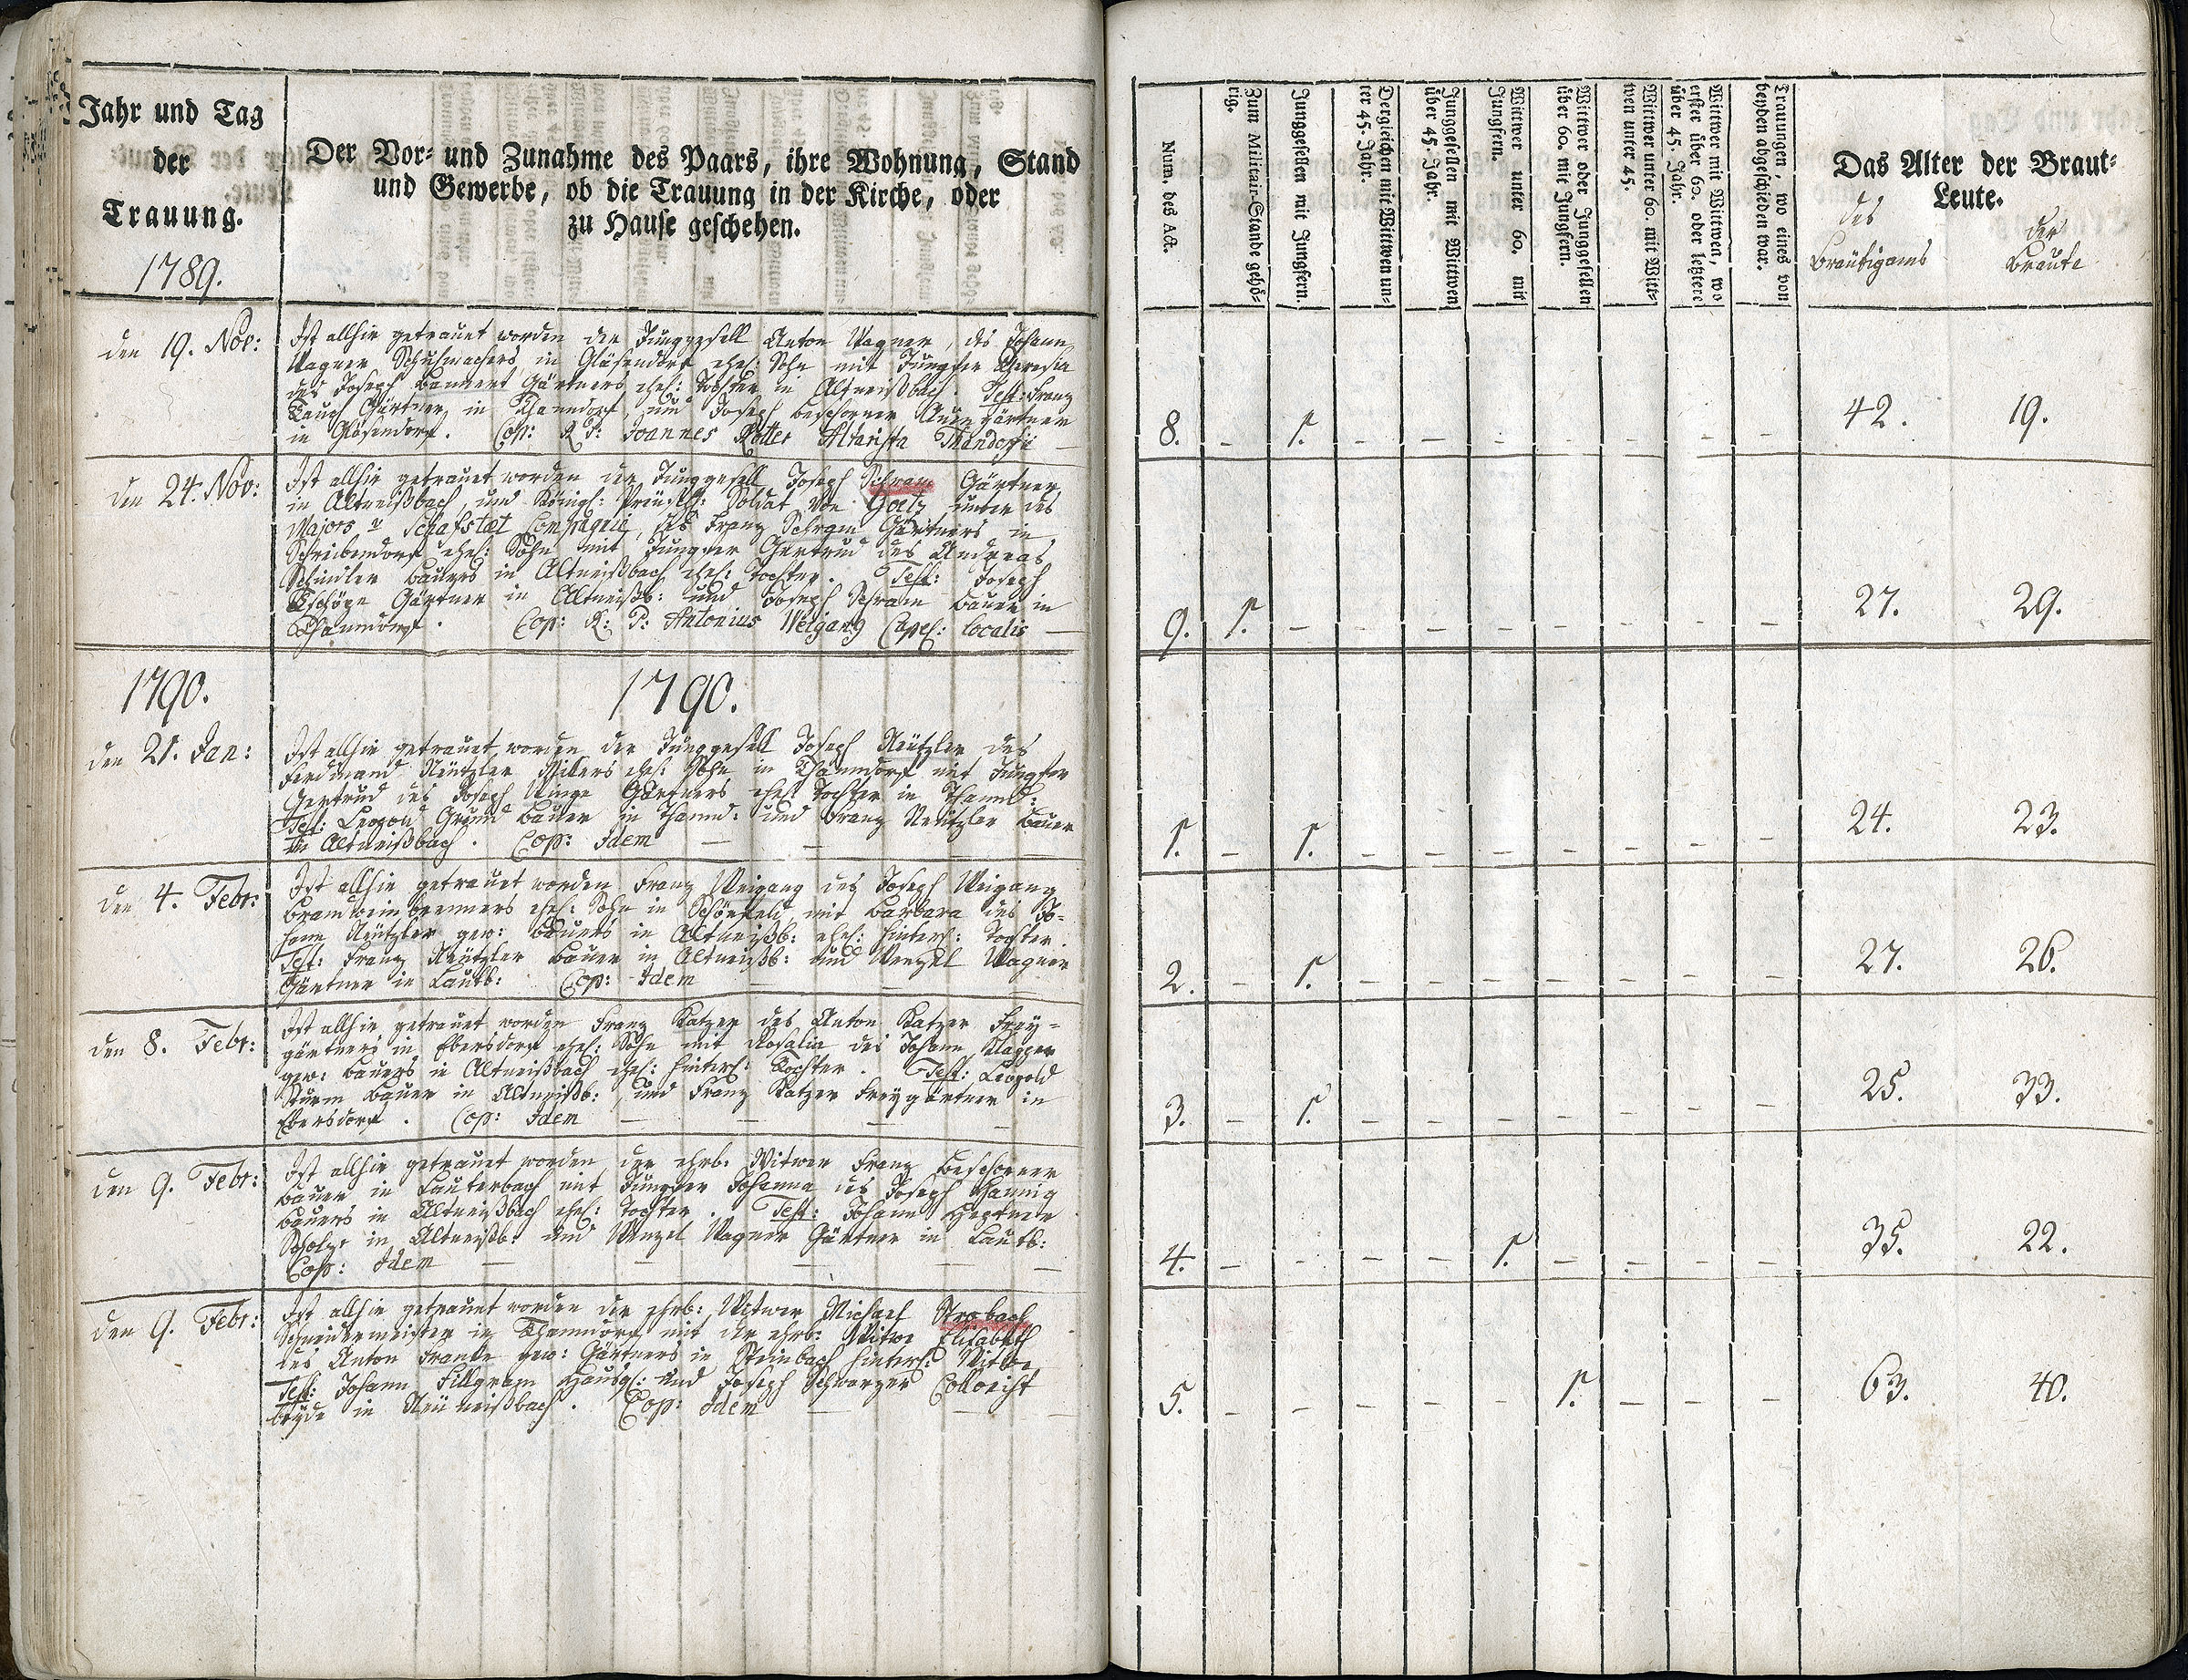 Jahr und Tag
der
Trauung.
1789.
Der Vor- und Zunahme des Paars, ihre Wohnung, Stand
und Gewerbe, ob die Trauung in der Kirche, oder
zu Hause geschehen.
den 19. Nov:
Ist allhie getrauet worden der Junggesell Anton Wagner, des Johann
Wagner Schuhmachers in Gläsendorf ehel: Sohn mit Jungfer Theresia
des Joseph Bannert Gärtners ehel: Tochter in Altneißbach. Test: Franz
Gärtner in Thanndorf, und Joseph Beschorner Auen gärtner
in Gläsendorf. Cop: R: P: Joannes Rotter Altarista Thandorfii
den 24. Nov:
Ist allhie getrauet worden der Junggesell Joseph Schram Gärtner
in Altneißbach, und Königl: Preüsch: Soldat von Goetz unter des
Majors v Schafstæt Compagnie, des Franz Schram Gärtners in
Schreibendorf ehel: Sohn mit Jungfer Gertrud des Andreas
Schindler Bauers in Altneißbach ehel: Tochter. Test: Joseph
Tschöpe Gärtner in Altneißb: und Joseph Schram Bauer in
Thanndorf. Cop: R: P: Antonius Weigang Capel: localis —
1790.
1790.
den 21. Jan:
Ist allhie getrauet worden der Junggesell Joseph Neützler des
Ferdinand Neützler Millers ehel: Sohn in Thanndorf mit Jungfer
Gertrud des Joseph Gärtners ehel: Tochter in Thannd:
Test: Leopold Grund Bauer in Thannd: und Franz Neützler Bauer
in Altneißbach. Cop: Idem — — —
den 4. Febr:
Ist allhie getrauet worden Franz Weigang des Joseph Weigang
Brandweinbrenners ehel: Sohn in Schönfeld, mit Barbara des Jo-
hann Neützler gew: Bauers in Altneißb: ehel: hinterl: Tochter.
Test: Franz Neützler Bauer in Altneißb: und Wenzel Wagner
Gärtner in Lautb: Cop: Idem — — —
den 8. Febr:
Ist allhie getrauet worden Franz Katzer des Anton Katzer Frey-
gärtners in Ebersdorf ehel: Sohn mit Rosalia des Johann Klapper
gew: Bauers in Altneißbach ehel: hinterl: Tochter. Test: Leopold
Sturm Bauer in Altneißb: und Franz Katzer Freygärtner in
Ebersdorf. Cop: Idem — — — —
den 9. Febr:
Ist allhie getrauet worden der ehrb: Witwer Franz Beschorner
Bauer in Lauterbach mit Jungfer Johanna des Joseph Hannig
Bauers in Altneißbach ehel: Tochter. Test: Johann
Scholze in Altneißb: und Wenzel Wagner Gärtner in Lautb:
Cop: Idem — — — — —
den 9. Febr:
Ist allhie getrauet worden der ehrb: Witwer Michael Strobach
Schneidermeister in Thanndorf mit der ehrb: Witwe Elisabeth
des Anton Franke gew: Gärtners in Steinbach hinterl: Witwe
Test: Johann Fillgram Häusl: und Joseph Schwarzer Collonist
beyde in Neü neißbach. Cop: Idem — — —
Num. des Act.
Zum Militair-Stande gehö-
rig.
Junggesellen mit Jungfern.
Dergleichen mit Wittwen un-
ter 45. Jahr.
Junggesellen mit Wittwen
über 45. Jahr.
Wittwer unter 60. mit
Jungfern.
Wittwer oder Junggesellen
über 60. mit Jungfern.
Wittwer unter 60. mit Witt-
wen unter 45.
Wittwer mit Wittwen, wo
erster über 60. oder letztere
über 45. Jahr.
Trauungen, wo eines von
beyden abgeschieden war.
Das Alter der Braut-
Leute.
des
Bräutigams
der
Braute
8. – 1. – – – – – – – 42. 19.
9. 1. – – – – – – – – 27. 29.
1. – 1. – – – – – – – 24. 23.
2. – 1. – – – – – – – 27. 26.
3. – 1. – – – – – – – 25. 33.
4. – – – – 1. – – – – 35. 22.
5. – – – – – 1. – – – 63. 40.